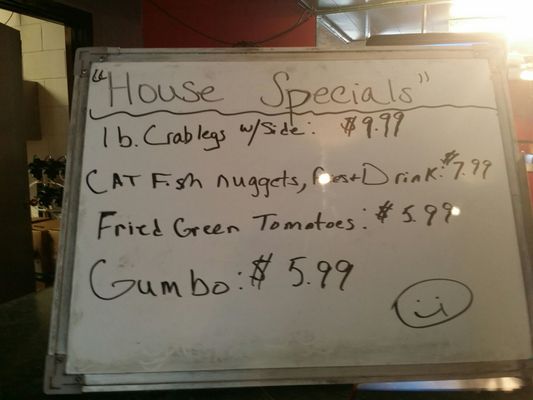 "House Specials"
1 lb. Crab legs w/Side: $9.99
CAT Fish nuggets, Drink: $7.99
Fried Green Tomatoes: $5.99
Gumbo: $5.99